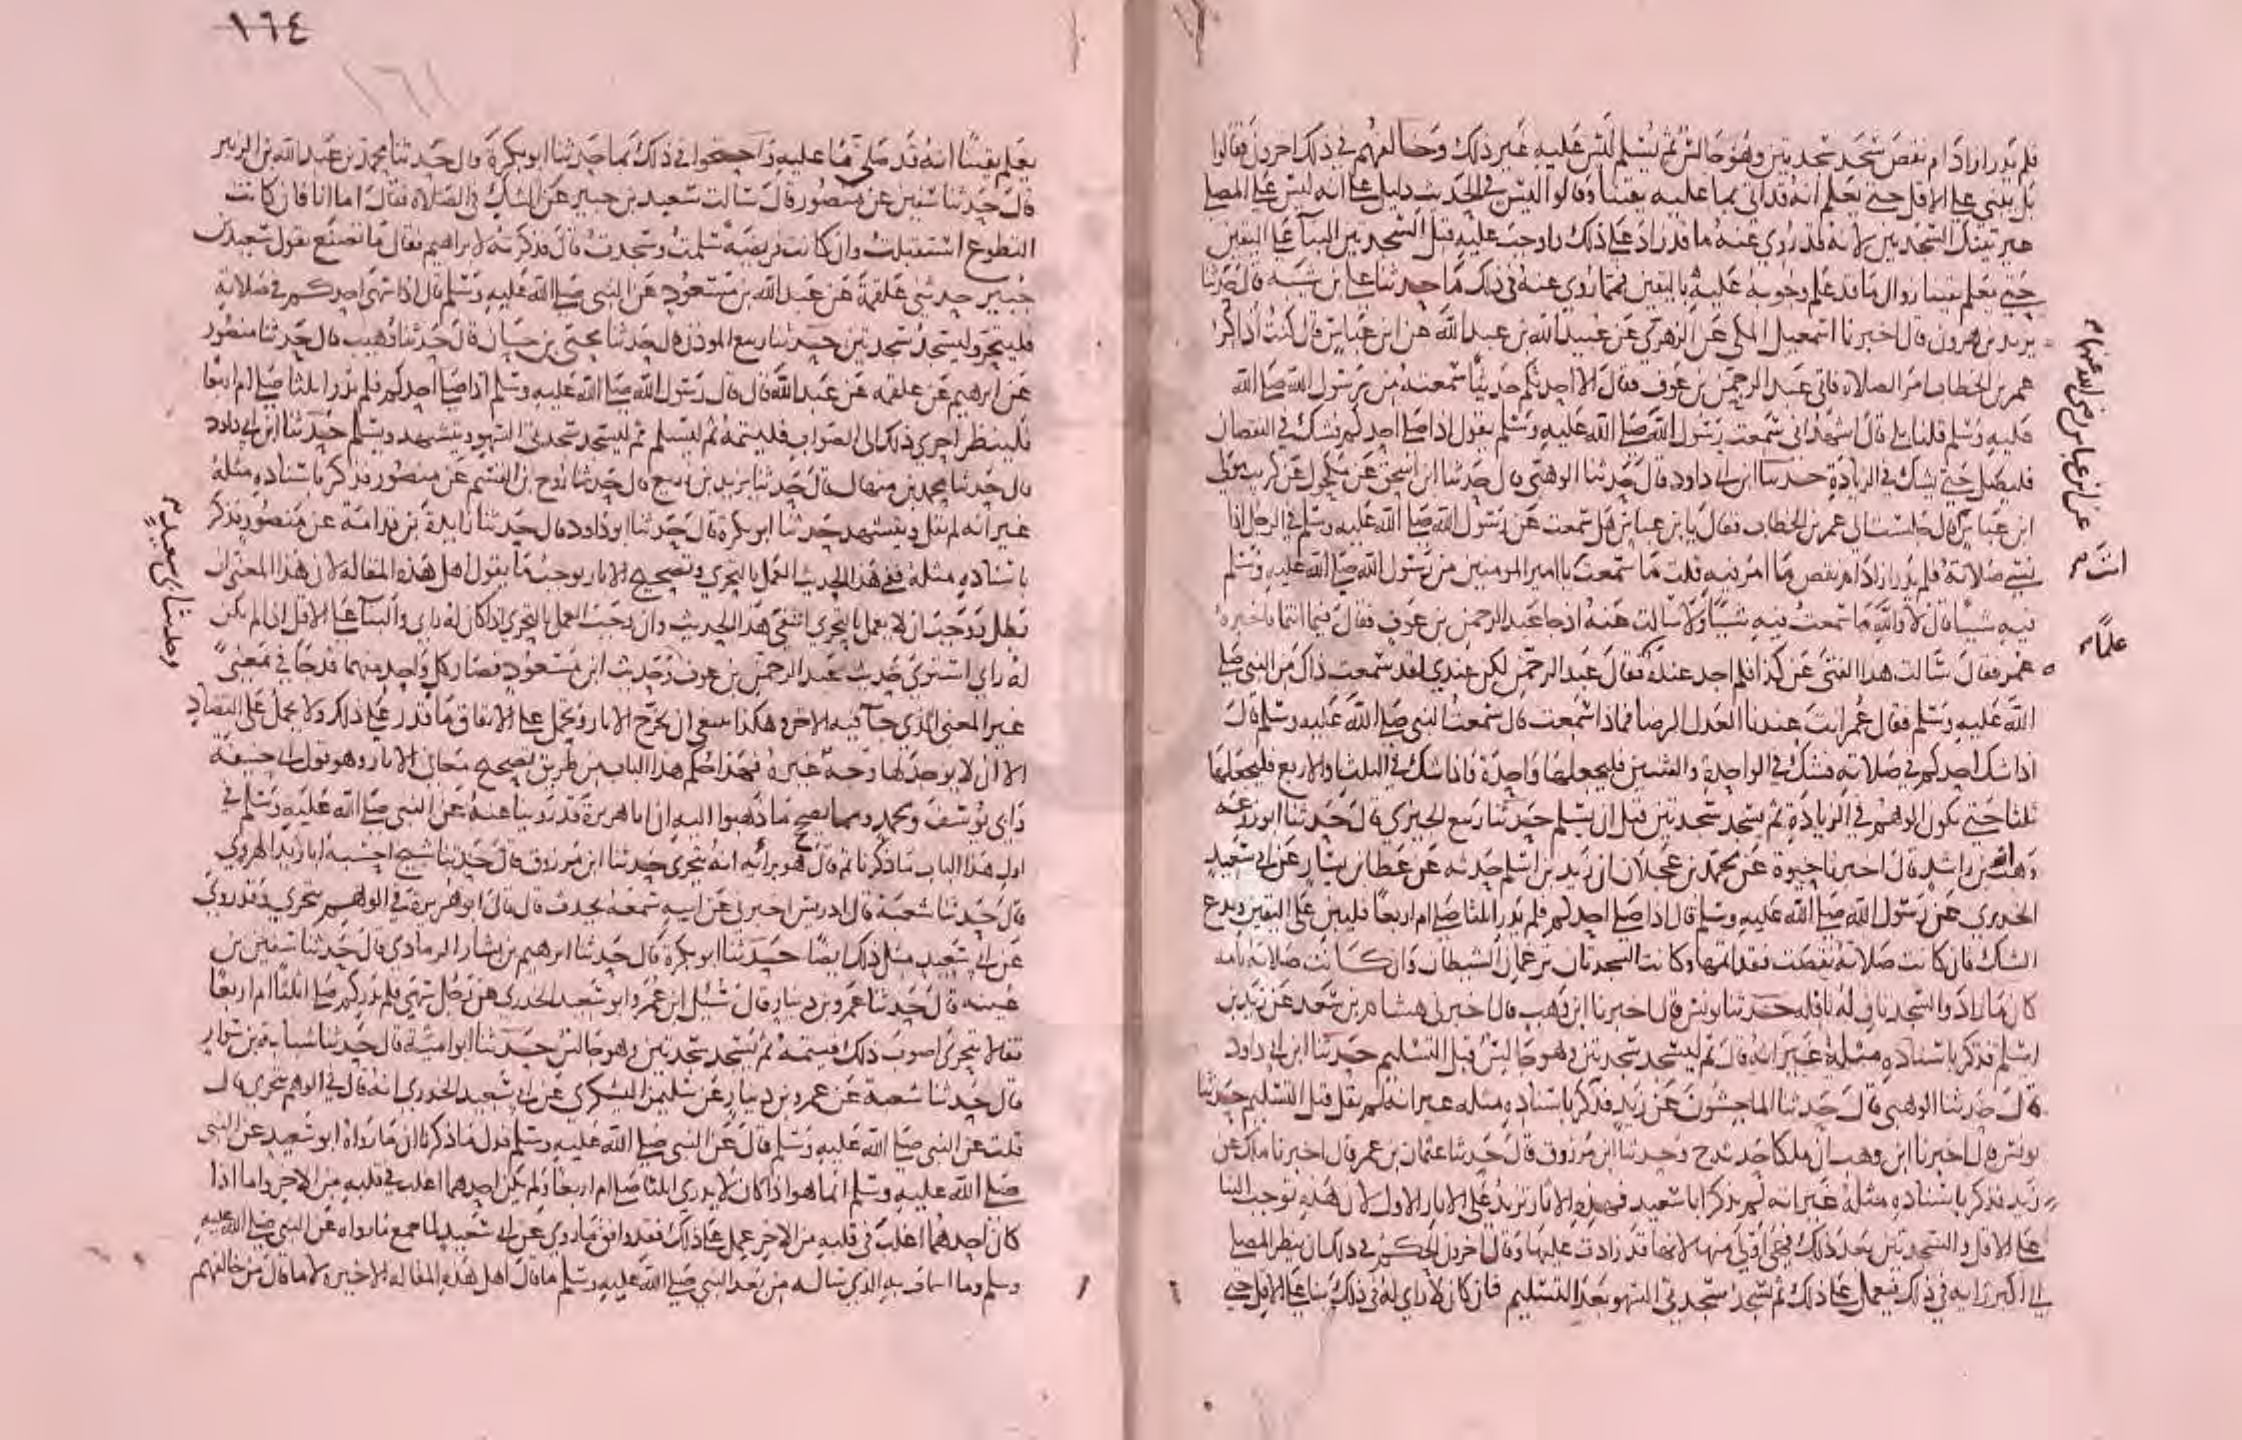 فلم يدر ازاد ام نقص سجد سجدتين وهو جالس ثم يسلم ليس عليه غير ذلك وخالفهم في ذلك اخرون فقالوا
بل يبني علي الاقل حتي يعلم انه قد اتي بما عليه يقينا وقالوا ليس في الحديث دليل علي انه ليس علي المصلي
غير تينك السجدتين لانه قد روي عنه ما قد زاد علي ذلك واوجب عليه قبل السجدتين البنآ علي اليقين
حتي يعلم يقينا زوال ما قد علم وجوبه عليه باليقين فمما روي عنه في ذلك ما حدثنا علي بن شيبه قال حدثنا
يزيد بن هرون قال اخبرنا اسمعيل المكي عن الزهري عن عبيد الله بن عبد الله عن ابن عباس قال كنت اذاكر
عمر بن الخطاب امر الصلاة فاتي عبد الرحمن بن عوف فقال الا احدثكم حديثا سمعته من رسول الله صلي الله
عليه وسلم قلنا بلي قال اشهد اني سمعت رسول الله صلي الله عليه وسلم يقول اذا صلي احدكم فشك في النقصان
فليصل حتي يشك في الزيادة حدثنا ابن ابي داود قال حدثنا الوهبي قال حدثنا ابن اسحق عن مكحول عن كريب مولي
ابن عباس قال جلست الي عمر بن الخطاب فقال يا بن عباس هل سمعت عن رسول الله صلي الله عليه وسلم في الرجل اذا
نسي صلاته فلم يدر ازاد ام نقص ما امر فيه قلت ما سمعت يا امير المومنين من رسول الله صلي الله عليه وسلم
فيه شيئا قال لا والله ما سمعت فيه شيئا ولا سالت عنه اذ جا عبد الرحمن بن عوف فقال فيما انتما فاخبره
عمر فقال سالت هذا الفتي عن كذا فلم اجد عنده فقال عبد الرحمن لكن عندي لقد سمعت ذاك من النبي صلي
الله عليه وسلم فقال عمر انت عندنا العدل الرضا فماذا سمعت قال سمعت النبي صلي الله عليه وسلم قال
اذا شك احدكم في صلاته فشك في الواحدة والثنتين فليجعلها واحدة فاذا شك في الثلث او الاربع فليجعلها
ثلثا حتي يكون الوهم في الزيادة ثم يسجد سجدتين قبل ان يسلم حدثنا ربيع الجيزي قال حدثنا ابو زرعه
وهب الله بن راشد قال اخبرنا حيوة عن محمد بن عجلان ان زيد بن اسلم حدثه عن عطا بن يسار عن ابي سعيد
الخدري عن رسول الله صلي الله عليه وسلم قال اذا صلي احدكم فلم يدر اثلثا صلي ام اربعا فليبن علي اليقين ويدع
الشك فان كانت صلاته نقصت فقد اتمها وكانت السجدتان ترغمان الشيطان وان كانت صلاته تامه
كان ما زاد والسجدتان له نافله حدثنا يونس قال اخبرنا ابن وهب قال اخبرني هشام بن سعد عن زيد بن
اسلم فذكر باسناده مثله غير انه قال ثم ليسجد سجدتين وهو جالس قبل التسليم حدثنا ابن ابي داود
قال حدثنا الوهبي قال حدثنا الماجشون عن زيد فذكر باسناده مثله غير انه لم يقل قبل التسليم حدثنا
يونس قال اخبرنا ابن وهب ان ملكا حدثه ح وحدثنا ابن مرزوق قال حدثنا عثمان بن عمر قال اخبرنا ملك عن
زيد فذكر باسناده مثله غير انه لم يذكر ابا سعيد فهذه الاثار تزيد علي الاثار الاول لان هذه توجب البنا
علي الاقل والسجدتين بعد ذلك فهي اولي منها لانها قد زادت عليها وقال اخرون الحكم في ذلك ان ينظر المصلي
الي اكبر رايه في ذلك فيعمل علي ذلك ثم يسجد سجدتي السهو بعد التسليم فان كان لا راي له في ذلك بنا علي الاقل حتي
عن ابن عباس رضي الله عنهما
انت
علما
١٦٤
١٦١
يعلم يقينا انه قد صلي ما عليه واحتجوا في ذلك بما حدثنا ابو بكرة قال حدثنا محمد بن عبد الله بن الزبير
قال حدثنا سفين عن منصور قال سالت سعيد بن جبير عن الشك في الصلاة فقال اما انا فان كانت
التطوع استقبلت وان كانت فريضة سلمت وسجدت قال فذكرته لابراهيم فقال ما تصنع بقول سعيد بن
جبير حدثني علقمة عن عبد الله بن مسعود عن النبي صلي الله عليه وسلم قال اذا سهي احدكم في صلاته
فليتحر وليسجد سجدتين حدثنا ربيع الموذن قال حدثنا يحيي بن حسان قال حدثنا وهيب قال حدثنا منصور
عن ابرهيم عن علقمه عن عبد الله قال قال رسول الله صلي الله عليه وسلم اذا صلي احدكم فلم يدر اثلثا صلي ام اربعا
فلينظر احري ذلك الي الصواب فليتمه ثم ليسلم ثم ليسجد سجدتي السهو ويتشهد ويسلم حدثنا ابن ابي داود
قال حدثنا محمد بن منهال قال حدثنا يزيد بن زريع قال حدثنا روح بن القسم عن منصور فذكر باسناده مثله
غير انه لم يقل ويتشهد حدثنا ابو بكرة قال حدثنا ابو داود قال حدثنا زايدة بن قدامة عن منصور فذكر
باسناده مثله ففي هذا الحديث العمل بالتحري وتصحيح الاثار يوجب ما يقول اهل هذه المقاله لان هذا المعني ان
بطل ووجب ان لا يعمل بالتحري انتفي هذا الحديث وان وجب العمل بالتحري اذا كان له راي والبنآ علي الاقل اذا لم يكن
له راي استوي حديث عبد الرحمن بن عوف وحديث ابن مسعود فصار كل واحد منهما قد جا في معني
غير المعني الذي جآ فيه الاخر وهكذا ينبغي ان يخرج الاثار وتحمل علي الاتفاق ما قدر علي ذلك ولا يحمل علي التضاد
الا ان لا يوجد لها وجه غيره فهذا حكم هذا الباب من طريق تصحيح معاني الاثار وهو قول ابي حنيفه
وابي يوسف ومحمد ومما يصحح ما ذهبوا اليه ان ابا هريرة قد روينا عنه عن النبي صلي الله عليه وسلم في
اول هذا الباب ما ذكرنا ثم قال هو برائه انه يتحري حدثنا ابن مرزوق قال حدثنا شيخ احسبه ابا زيد الهروي
قال حدثنا شعبة قال ادريس اخبرني عن ابيه سمعه يحدث قال قال ابو هريرة في الوهم يتحري وقد روي
عن ابي سعيد مثل ذلك ايضا حدثنا ابو بكرة قال حدثنا ابرهيم بن بشار الرمادي قال حدثنا سفين بن
عيينه قال حدثنا عمرو بن دينار قال سئل ابن عمر وابو سعيد الخدري عن رجل سهي فلم يدر كم صلي اثلثا ام اربعا
فقالا يتحري اصوب ذلك فيتمه ثم يسجد سجدتين وهو جالس حدثنا ابو امية قال حدثنا شبابه بن سوار
قال حدثنا شعبة عن عمرو بن دينار عن سليمن اليشكري عن ابي سعيد الخدري انه قال في الوهم يتحري قال
قلت عن النبي صلي الله عليه وسلم قال عن النبي صلي الله عليه وسلم فدل ما ذكرنا ان ما رواه ابو سعيد عن النبي
صلي الله عليه وسلم انما هو اذا كان لا يدري اثلثا صلي ام اربعا ولم يكن احدهما اغلب في قلبه من الاخر واما اذا
كان احدهما اغلب في قلبه من الاخر عمل علي ذلك فقد وافق ما روي عن ابي سعيد لما جمع ما رواه عن النبي صلي الله عليه
وسلم وما اجاب به الذي ساله من بعد النبي صلي الله عليه وسلم ما قال اهل هذه المقاله الاخيره لا ما قال من خالفهم